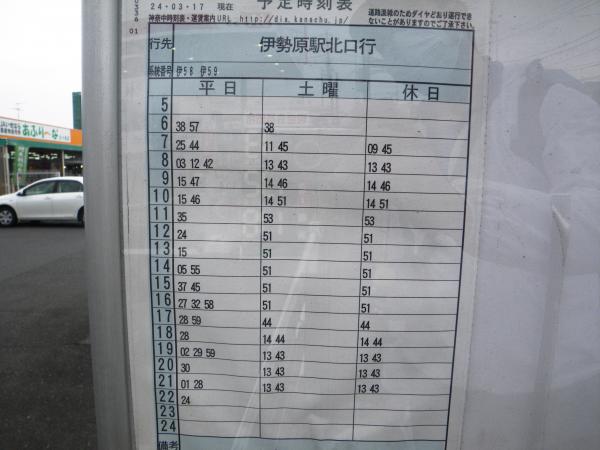 24-03-17 現在 予定時刻表
神奈中時刻表・運賃案内URL http://dia.kanachu.jp/
道路混雑のためダイヤどおり運行でき
ないことがありますのでご了承下さい
01
行先 伊勢原駅北口行
系統番号 伊58 伊59
平日 土曜 休日
5
6 38 57 38
7 25 44 11 45 09 45
8 03 12 42 13 43 13 43
9 15 47 14 46 14 46
10 15 46 14 51 14 51
11 35 53 53
12 24 51 51
13 15 51 51
14 05 55 51 51
15 37 45 51 51
16 27 32 58 51 51
17 28 59 44 44
18 28 14 44 14 44
19 02 29 59 13 43 13 43
20 30 13 43 13 43
21 01 28 13 43 13 43
22 24
23
24
備考
あふり〜な